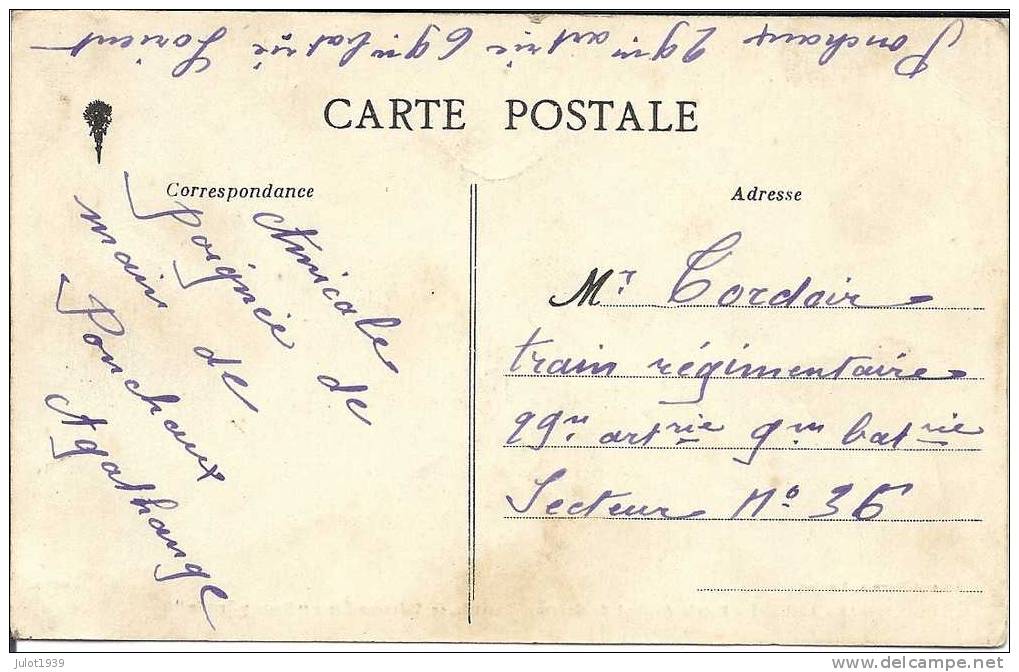 Ponchaux 29m artrie 69m batrie Lorient
CARTE POSTALE
Correspondance
Adresse
Amicale de
poignée de
main de
Ponchaux
Agathange
Mr Cordoir
train régimentaire
29m artrie 9m batrie
Secteur No 36
julot1939
www.delcampe.net